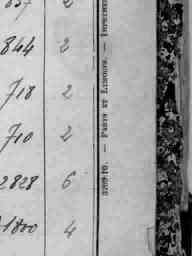 844 2
718 2
710 2
2828 6
1800 4
3269.10. — PARIS ET LIMOGES. — IMPRIMER